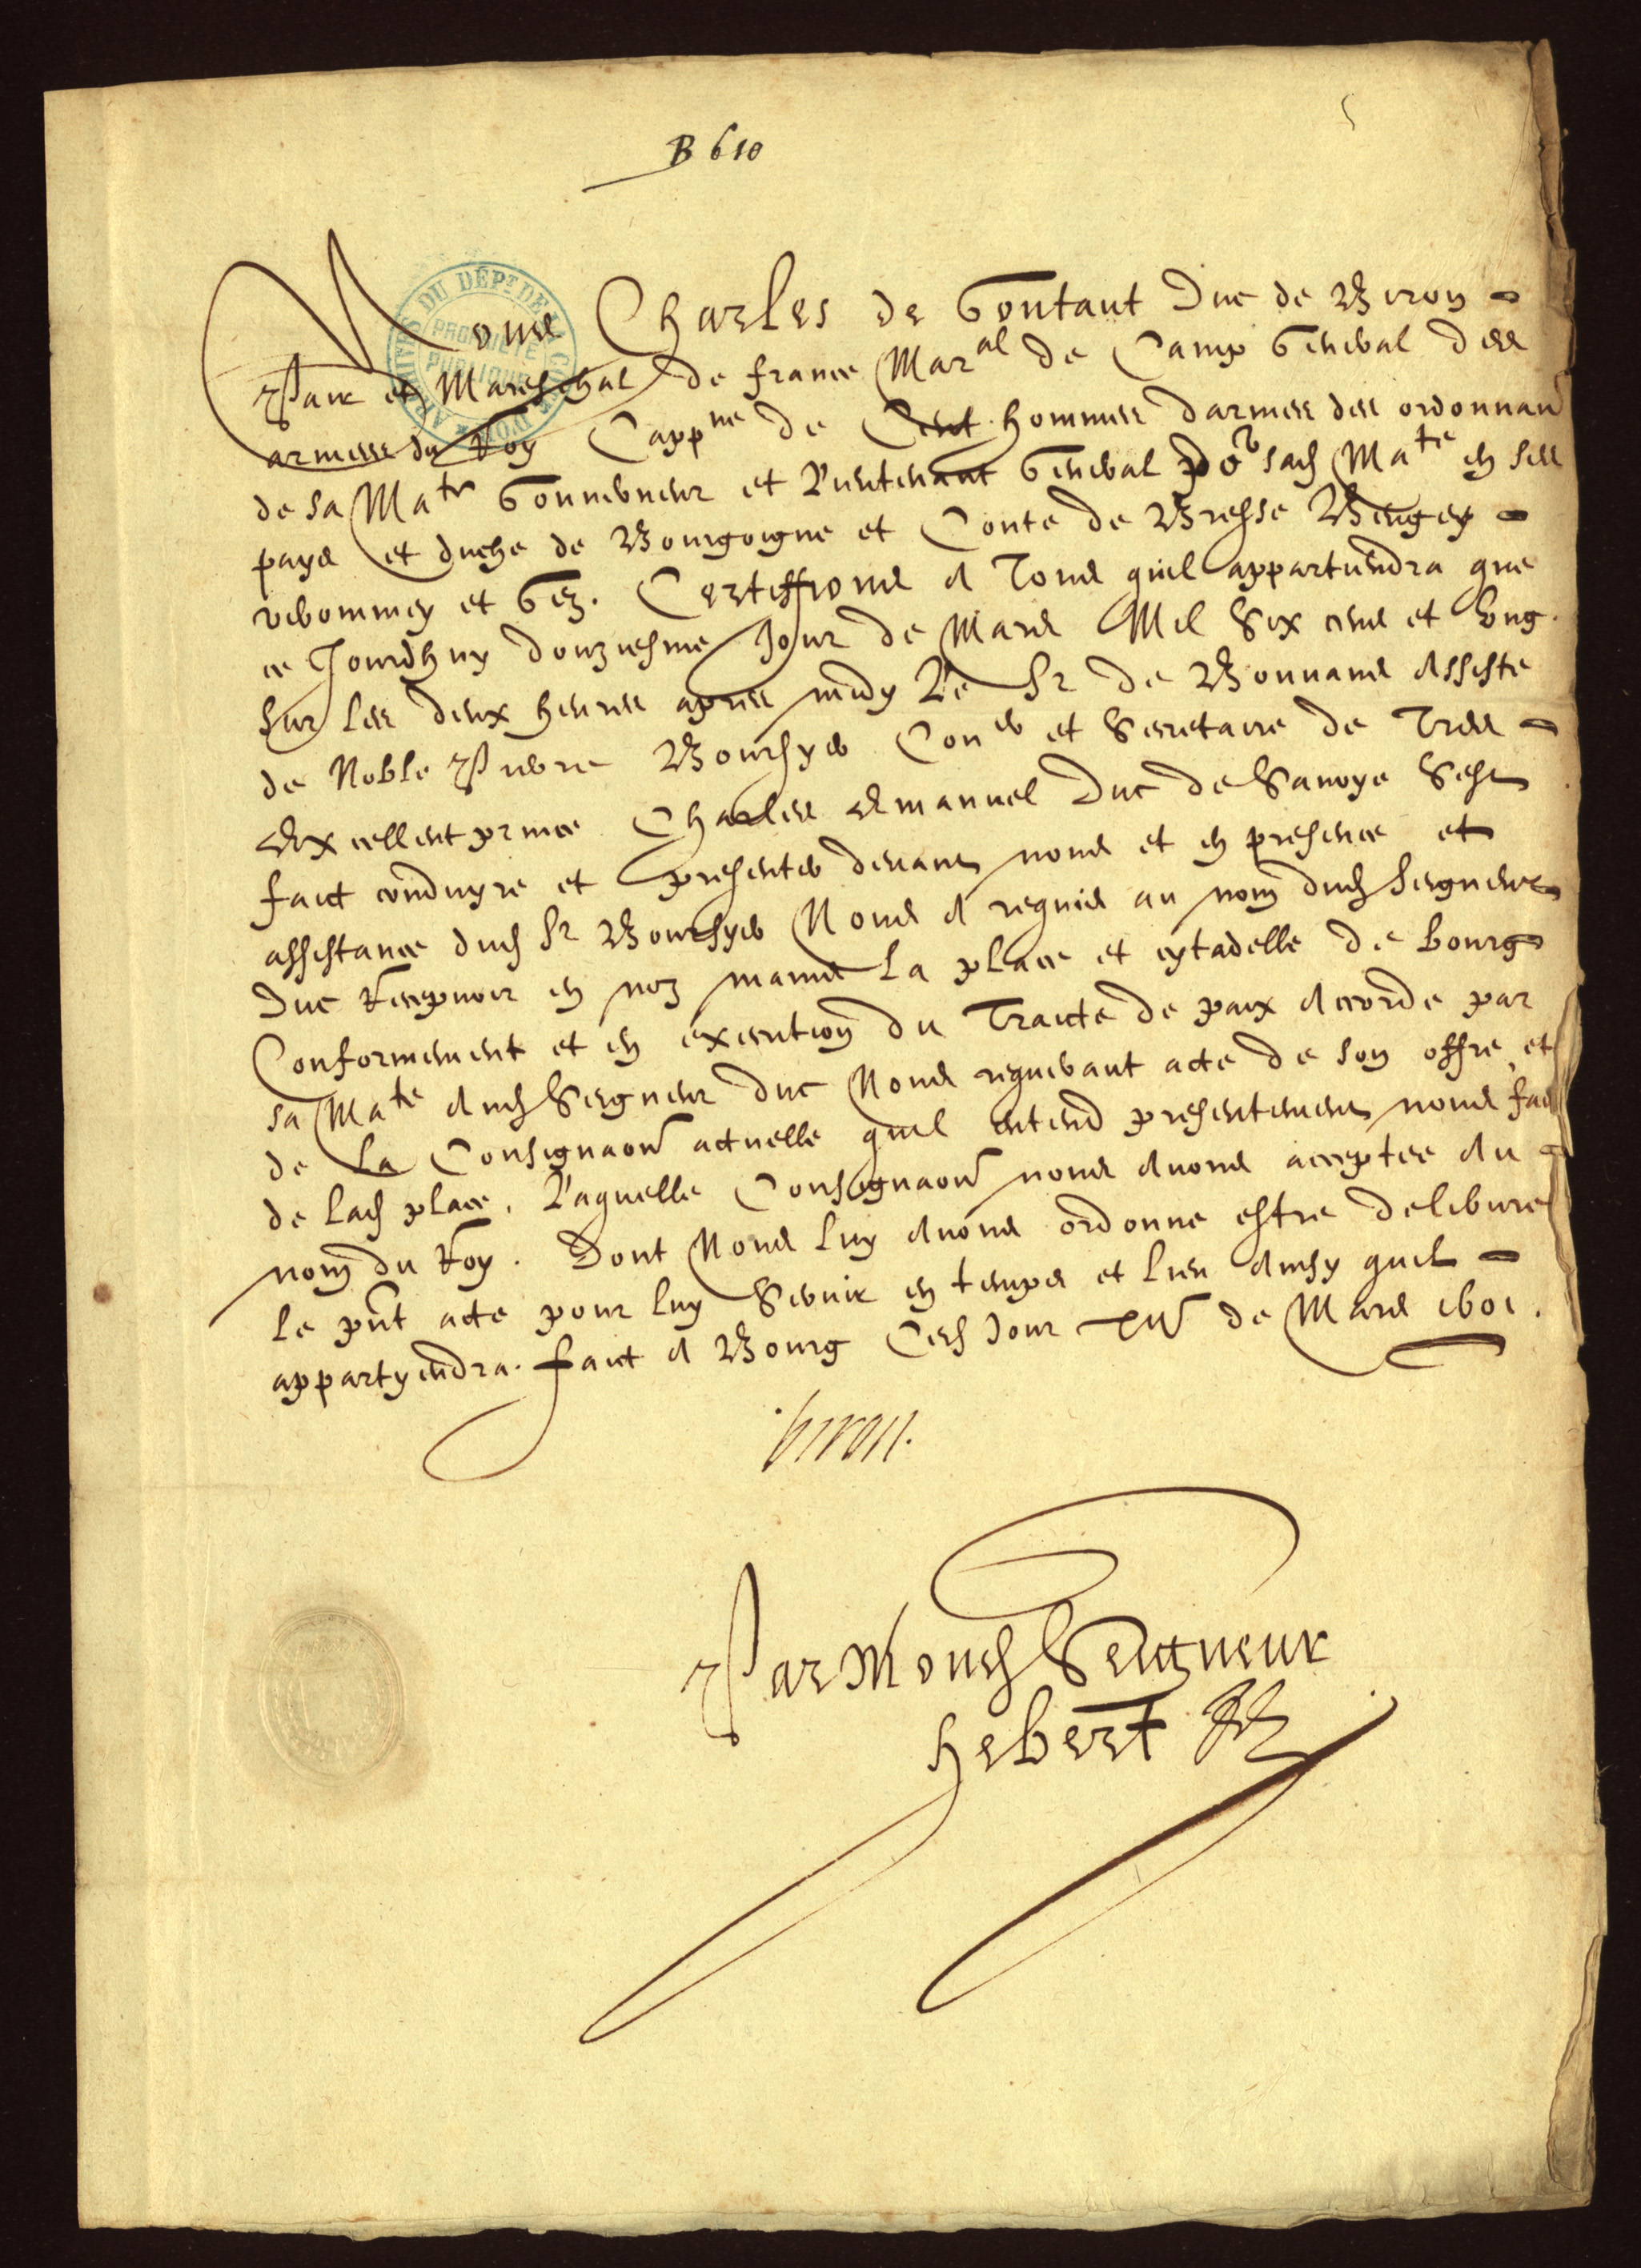 B 610
ARCHIVES DU DÉPT DE LA CÔTE D'OR
PROPRIÉTÉ
PUBLIQUE
Nous Charles de Gontaut Duc de Biron
Pair et Mareschal de france Maral de Camp General des
armees du Roy Cappne de Cent hommes darmes des ordonnan
de sa Mate Gouverneur et Lieutenant General por sad Mate en ses
pays et duche de Bourgoigne et Conte de Bresse Beugey
veromey et Gez. Certiffions A Tous quil appartiendra que
ce Jourdhuy douziesme Jour de Mars Mil Six cens et Ung.
sur les deux heures apres midy Le Sr de Bouvans Assiste
de Noble Pierre Boursyer Coner et Secretaire de Tres
Excellent prince Charles Emanuel Duc de Savoye Sest
faict conduyre et presenter devant nous et en presence et
assistance dud Sr Boursyer Nous A requis au nom dud Seigneur
Duc Recepvoir en noz mains La place et cytadelle de bourg
Conformement et en execution du Traicte de paix Accorde par
sa Mate Aud Seigneur Duc Nous requerant acte de son offre et
de La Consignaon actuelle quil entend presentement nous fai
de lad place. Laquelle Consignaon nous Avons acceptee Au
nom du Roy. Dont Nous luy Avons ordonne estre delibvre
le pnt acte pour luy Servir en temps et lieu Ainsy quil
appartyendra. faict A Bourg Cesd Jour xii de Mars 1601.
biron.
Par Mond Seigneur
hebert